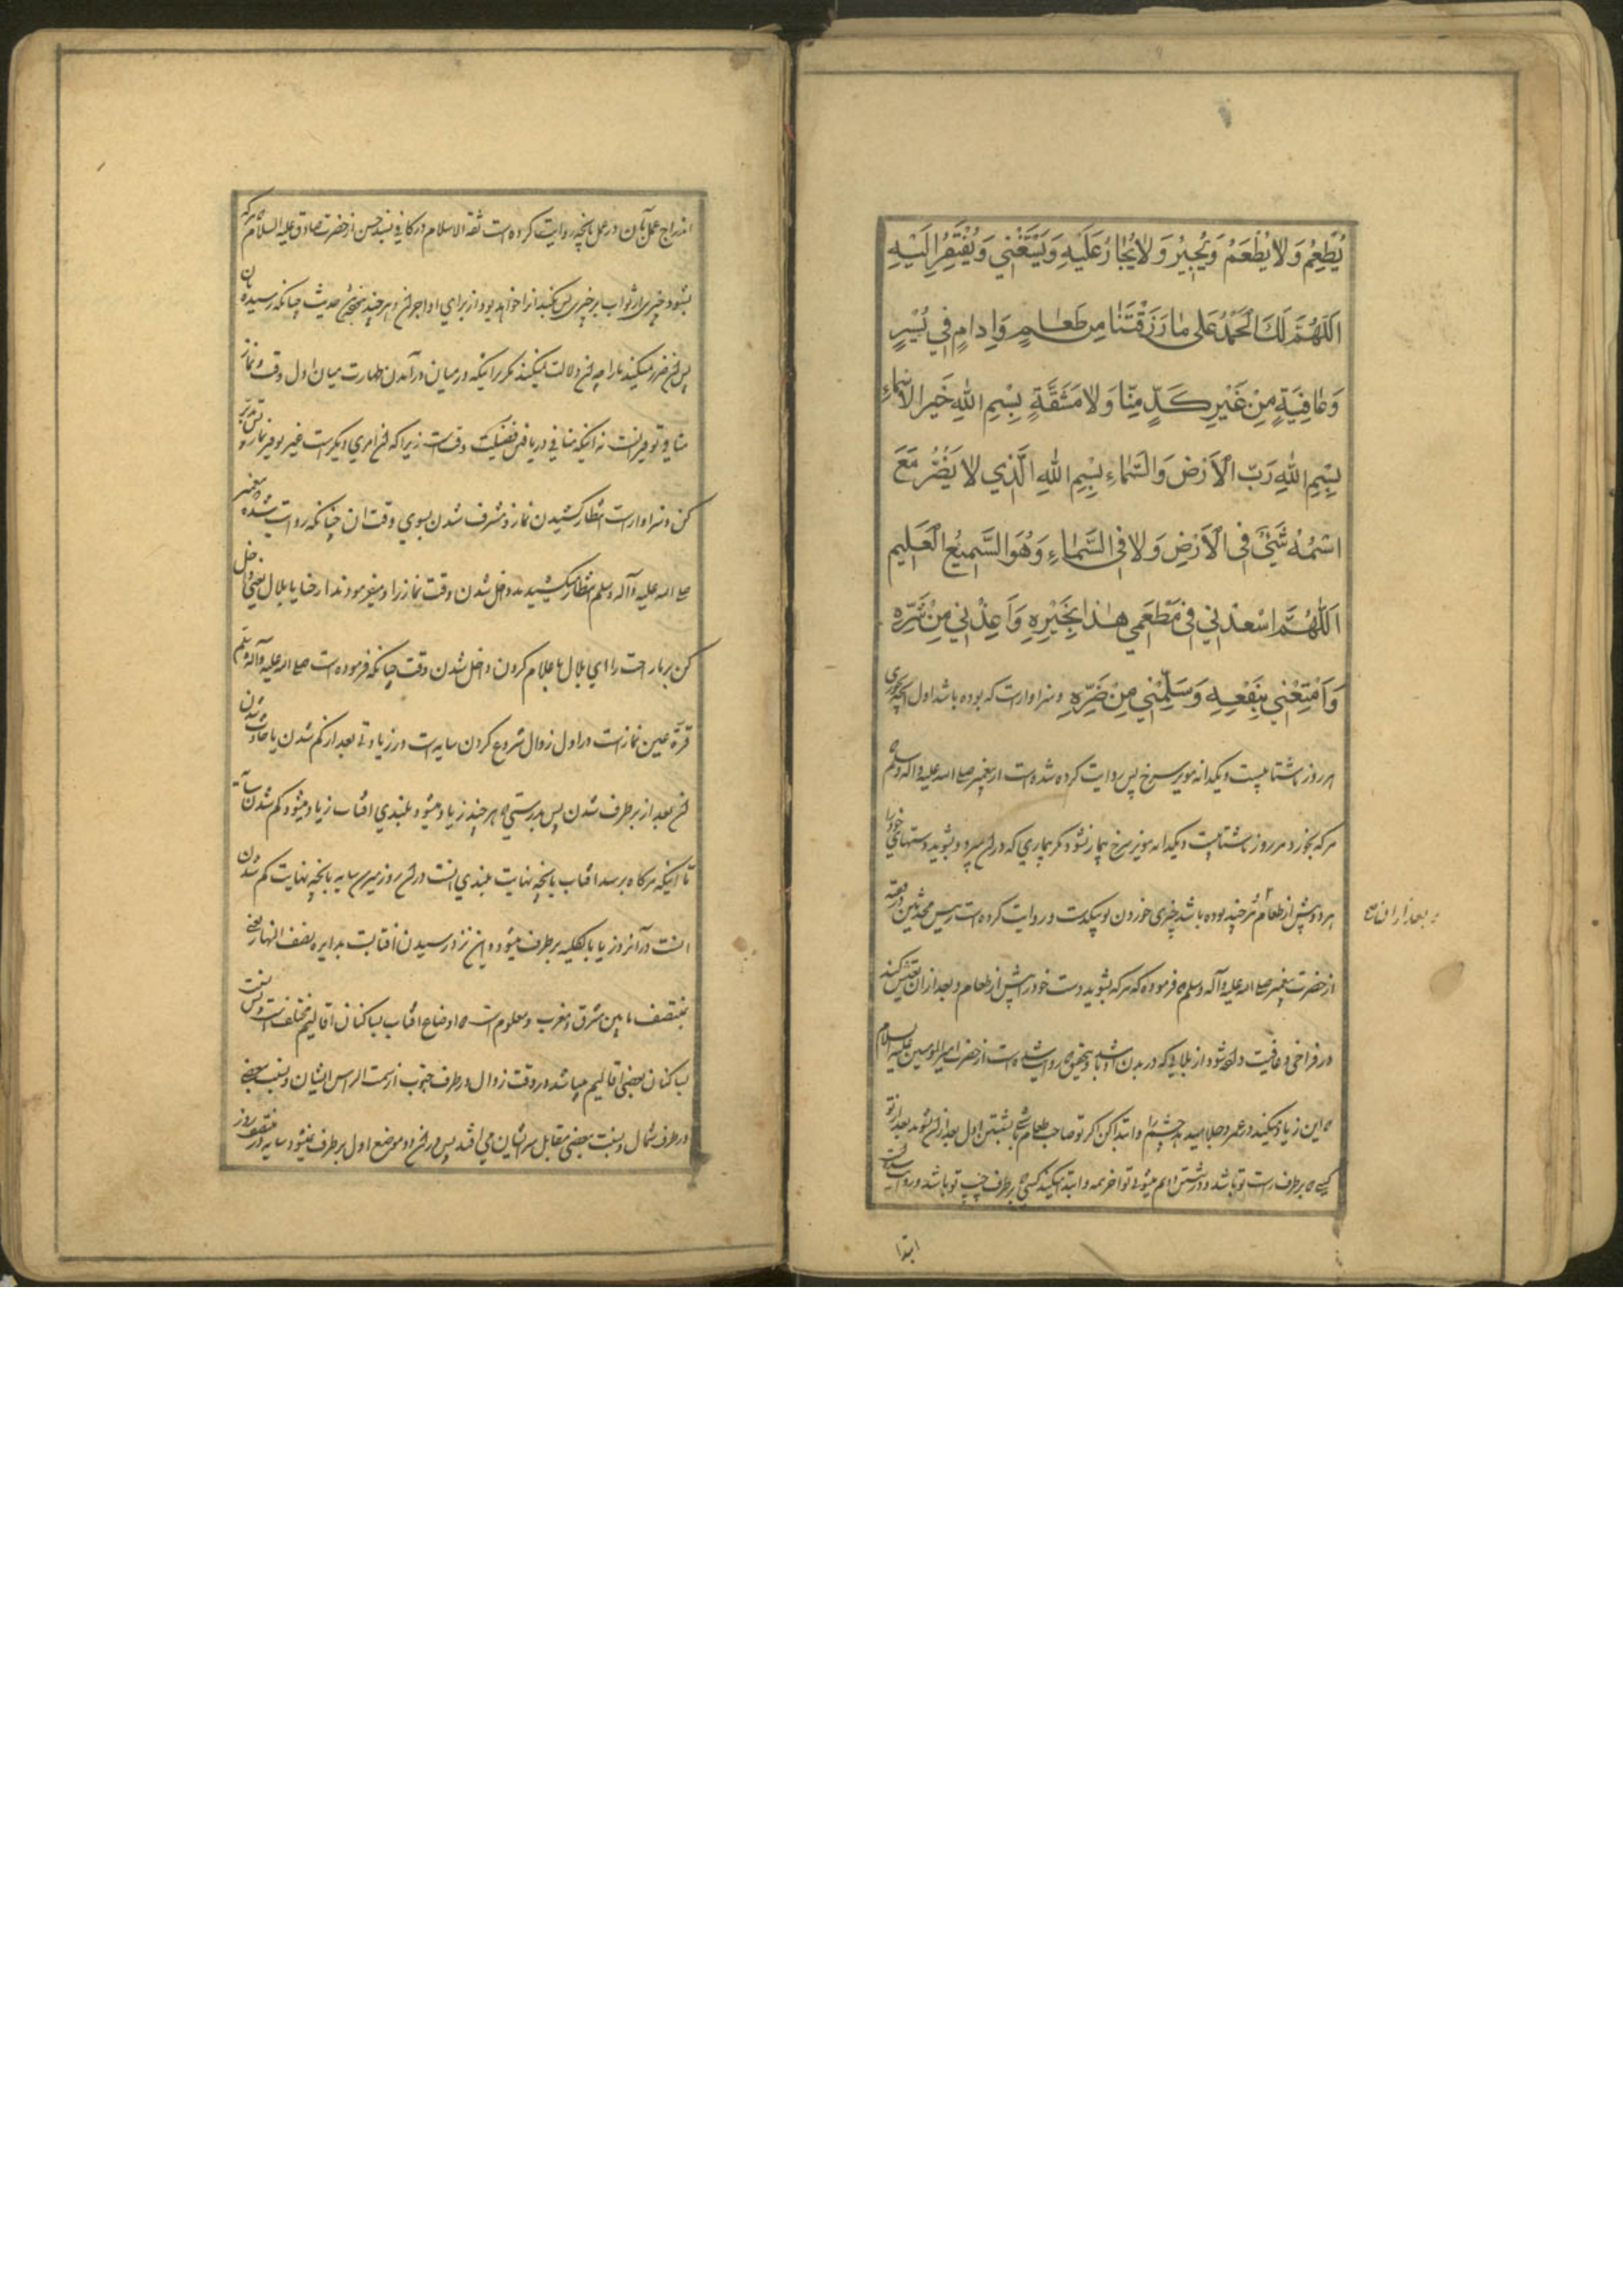 يُطْعِمُ وَلا يُطْعَمُ وَيُجِيْرُ وَلا يُجٰارُ عَلَيْهِ وَيَسْتَغْنِي وَيُفْتَقَرُ اِلَيْهِ
اَللّهُمَّ لَكَ الْحَمْدُ عَلى مٰا رَزَقْتَنٰا مِن طَعٰامٍ وَاِدامٍ فِي يُسْرٍ
وَعٰافِيَةٍ مِنْ غَيْرِ كَدٍّ مِنّٰا وَلا مَشَقَّةٍ بِسْمِ اللهِ خَيْرِ الاَسْمٰاءِ
بِسْمِ اللهِ رَبِّ الاَرْضِ وَالسَّمٰاءِ بِسْمِ اللهِ الَّذِي لا يَضُرُّ مَعَ
اسْمُهُ شَيْئٌ فِي الاَرْضِ وَلا فِي السَّمٰاءِ وَهُوَ السَّمِيعُ الْعَلِيم
اَللّهُمَّ اسْعِدْنِي فِي مَطْعَمِي هٰذا بِخَيْرِهِ وَاَعِذْنِي مِنْ شَرِّهِ
وَاَمْتِعْنِي بِنَفْعِهِ وَسَلِّمْنِي مِنْ ضَرِّهِ وسزاوارست که بوده باشد اول آنچه خوری
هر روز ناشتا بیست ویکدانه مویز سرخ پس روایت کرده شده است از پیغمبر صلی الله علیه واله وسلم
هرکه بخورد هر روز ناشتا بیست ویکدانه مویز سرخ بیمار نشود مکر بیماری که در ان میرد وبشوید دستهای خود را
هر دو پیش از طعام هر چند بوده باشد چیزی خوردن تو بیکدست وروایت کرده است رییس محدثین
وبعد از ان صح
از حضرت پیغمبر صلی الله علیه وآله وسلم که فرموده که هرکه بشوید دست خود را پیش از طعام وبعد از ان تعیش کند
در فراخی وعافیت داده شود از بلایی که در بدن او باشد وبتحقیق روایت شده است از حضرت امیر المومنین علیه السلام
که این زیاد میکند در عمر وجلا میدهد چشم را وابتدا کن کر تو صاحب طعام باشی بشستن اول بعد از ان بشوید بعد از تو
کسی که بر طرف راست تو باشد ودر شستن دوم میشوی تو اخر همه وابتدا میکند کسی که بر طرف چپ تو باشد
ابتدا
اندراج عمل بآن در عمل بانچه روایت کرده است ثقة الاسلام در کافی بسند حسن از حضرت صادق علیه السلام هرکه
بشنود چیزی از ثواب بر چیزی پس بکند انرا خواهد بود از برای او اجر ان وهر چند نبوده حدیث چنانکه رسیده باو
پس ان ضرر نمیکند ما را چه ان دلالت نمیکند مکر بر اینکه در میان در آمدن طهارت میان اول وقت ونماز
منافی توقیر است نه اینکه منافی دریافتن فضیلت وقتست زیرا که ان امری دیکرست غیر توقیر نماز پس تدبر
کن وسزاوارست انتظار کشیدن نماز ومشرف شدن بسوی وقت ان چنانکه روایت شده پیغمبر
صلی الله علیه وآله وسلم انتظار میکشیدند داخل شدن وقت نماز را ومیفرمودند ارحنا یا بلال یعنی داخل
کن بر ما راحت را ای بلال باعلام کردن داخل شدن وقت چنانکه فرموده است صلی الله علیه وآله وسلم
قرة عین نمازست در اول زوال شروع کردن سایه است در زیادتی بعد از کم شدن یا حادث شدن
ان بعد از بر طرف شدن پس بدرستی که هر چند زیاد میشود بلندی افتاب زیاد میشود کم شدن سایه
تا اینکه هرکاه برسد افتاب بانچه نهایت بلندی انست در ان روز میرسد سایه بانچه نهایت کم شدن
انست در آنروز یا بالکلیه بر طرف میشود واین نزد رسیدن افتابست بدایره نصف النهار یعنی
منتصف مابین مشرق ومغرب ومعلوم است که اوضاع افتاب بساکنان اقالیم مختلف است
بساکنان بعضی اقالیم میباشد در وقت زوال در طرف جنوب از سمت الراس ایشان ونسبت ببعضی
در طرف شمال ونسبت ببعضی مقابل سر ایشان می افتد پس در ان دو موضع اول بر طرف نمیشود سایه در منتصف روز